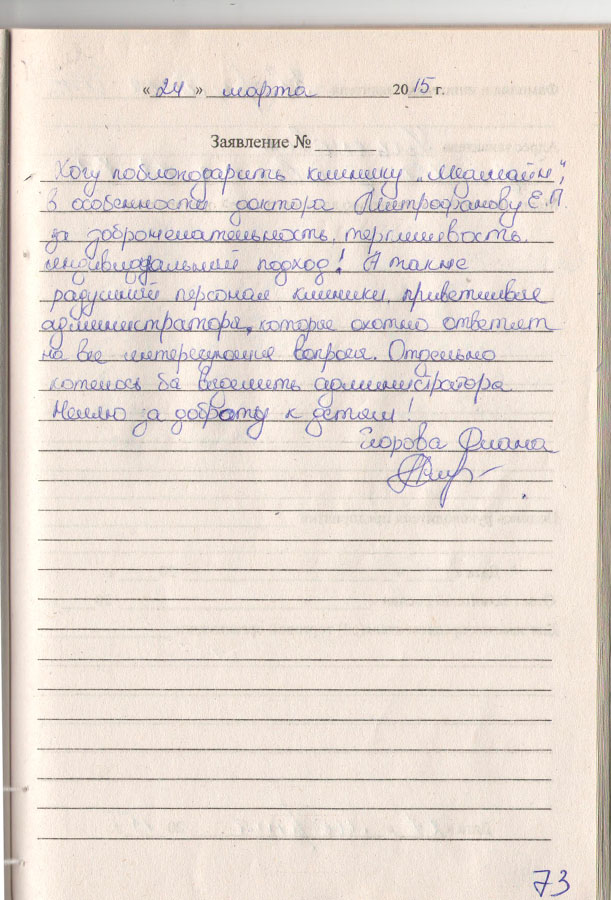 « 24 » марта 2015 г.
Заявление №
Хочу поблагодарить клинику „Медлайн",
в особенности доктора Митрофанову Е.П.
за доброжелательность, терпимость,
индивидуальный подход! А также
радушный персонал клиники, приветливые
администратора, которые охотно ответят
на все интересующие вопросы. Отдельно
хотелось бы выделить администратора
Нелю за доброту к детям!
Егорова Диана
73